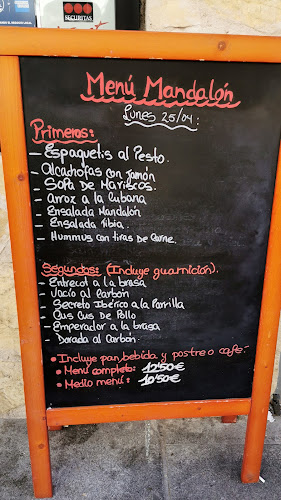 SECURITAS
Menú Mandalón
Lunes 25/04:
Primeros:
- Espaguetis al Pesto.
- Alcachofas con jamón
- Sopa De Mariscos.
- Arroz a la Cubana
- Ensalada Mandalón
- Ensalada Tibia.
- Hummus con tiras de Carne.
Segundos: (Incluye guarnición).
- Entrecot a la brasa
- Vacío al Carbón
- Secreto Ibérico a la Parrilla
- Cus Cus De Pollo
- Emperador a la brasa
- Dorada al Carbón.
• Incluye pan, bebida y postre o café.-
• Menú completo: 12'50€
• Medio menú: 10'50€